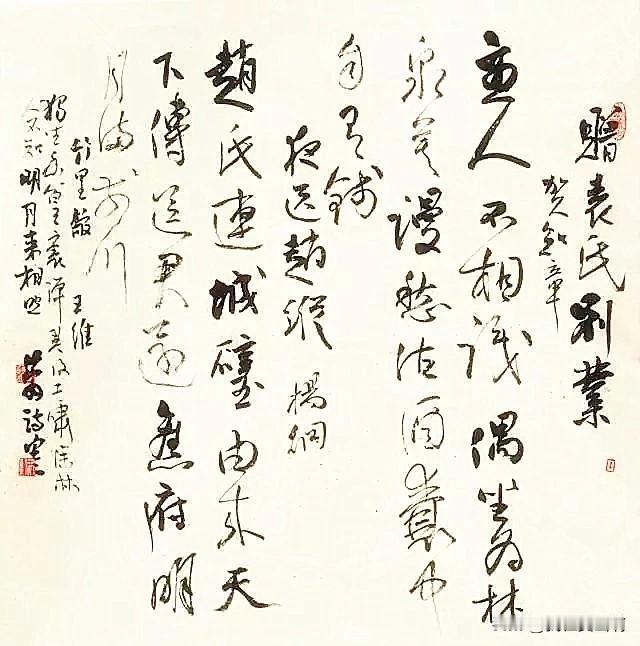 袁氏别業
賀知章
主人不相識偶坐為林
泉莫謾愁沽酒囊中
自有錢
夜送趙縱 楊炯
趙氏連城璧由來天
下傳送君還舊府明
月滿前川
竹里館 王維
獨坐幽篁裏彈琴復長嘯深林
人不知明月來相照